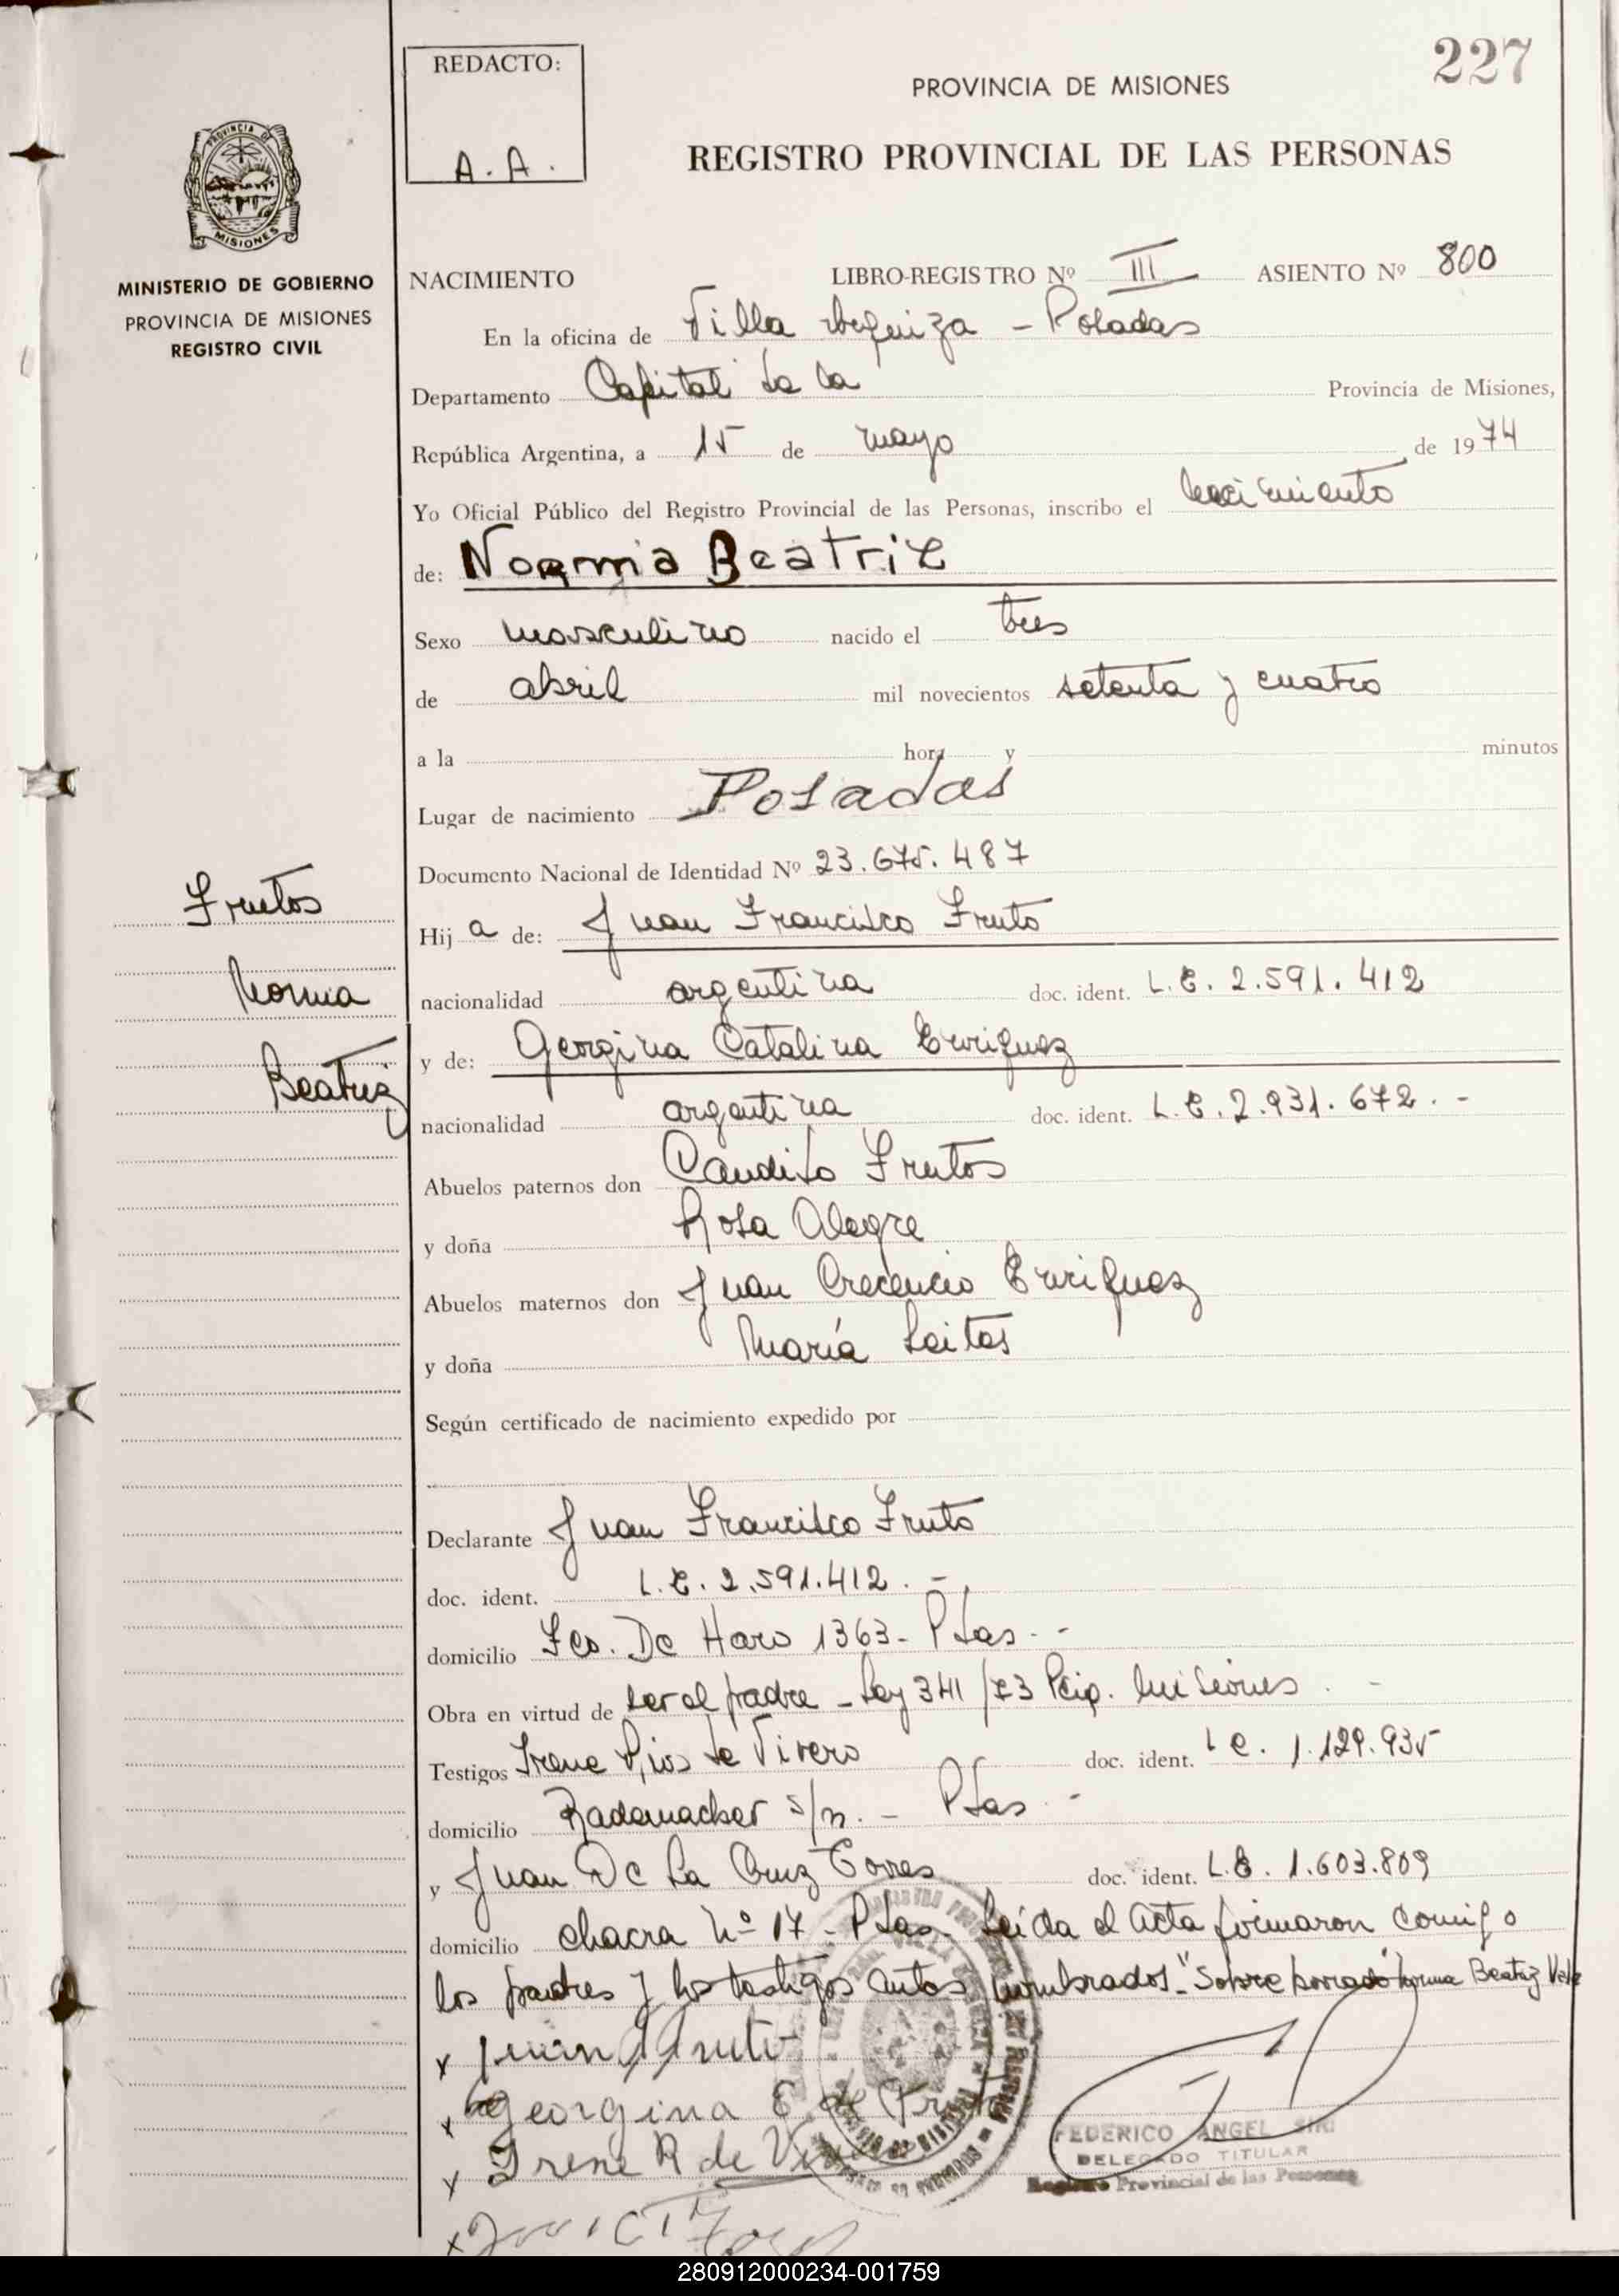 227
REDACTO:
A. A.
PROVINCIA DE MISIONES
REGISTRO PROVINCIAL DE LAS PERSONAS
PROVINCIA DE
MISIONES
MINISTERIO DE GOBIERNO
PROVINCIA DE MISIONES
REGISTRO CIVIL
NACIMIENTO LIBRO-REGISTRO Nº III ASIENTO Nº 800
En la oficina de Villa Urquiza - Posadas
Departamento Capital de la Provincia de Misiones,
República Argentina, a 15 de mayo de 1974
Yo Oficial Público del Registro Provincial de las Personas, inscribo el nacimiento
de: Norma Beatriz
Sexo masculino nacido el tres
de abril mil novecientos setenta y cuatro
a la hora y minutos
Lugar de nacimiento Posadas
Documento Nacional de Identidad Nº 23.675.487
Frutos
Norma
Beatriz
Hij a de: Juan Francisco Fruto
nacionalidad argentina doc. ident. L.E. 2.591.412
y de: Georgina Catalina Enriquez
nacionalidad argentina doc. ident. L.E. 2.931.672.-
Abuelos paternos don Candido Frutos
y doña Rosa Alegre
Abuelos maternos don Juan Crecencio Enriquez
y doña María Leites
Según certificado de nacimiento expedido por
Declarante Juan Francisco Fruto
doc. ident. L.E. 2.591.412.-
domicilio Fco. De Haro 1363- Pdas.-
Obra en virtud de ser el padre - Ley 341/73 Pcia. Misiones.-
Testigos Irene Rios de Vivero doc. ident. LC. 1.129.935
domicilio Rademacher s/n.- Pdas.-
y Juan De La Cruz Torres doc. ident. L.E. 1.603.809
domicilio chacra Nº 17- Pdas- Leída el Acta firmaron comigo
los padres y los testigos antes nombrados.- "Sobre borrado" Norma Beatriz Vale
x Juan F Fruto
x Georgina E de Fruto
x Irene R de Vivero
x Juan C T
FEDERICO ANGEL SIRI
DELEGADO TITULAR
Registro Provincial de las Personas
280912000234-001759